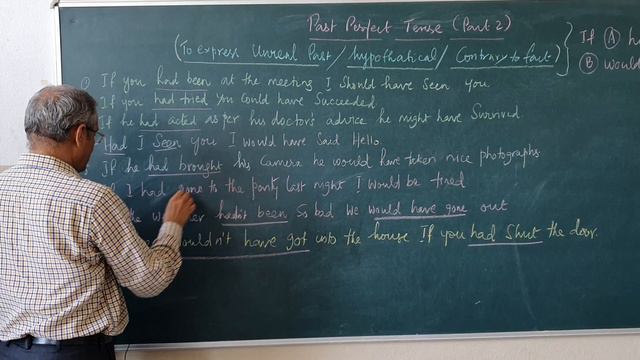 Past Perfect Tense (Part 2)
(To express Unreal Past / hypothatical / Contrary to fact)
If (A) ha
(B) would
① If you had been at the meeting I Should have Seen you
If you had tried you Could have Succeeded
If he had acted as per his doctor's advice he might have Survived
Had I Seen you I would have Said Hello
If he had brought his Camera he would have taken nice photographs.
I had gone to the party last night I would be tired
hadn't been So bad we would have gone out
wouldn't have got into the house If you had Shut the door.